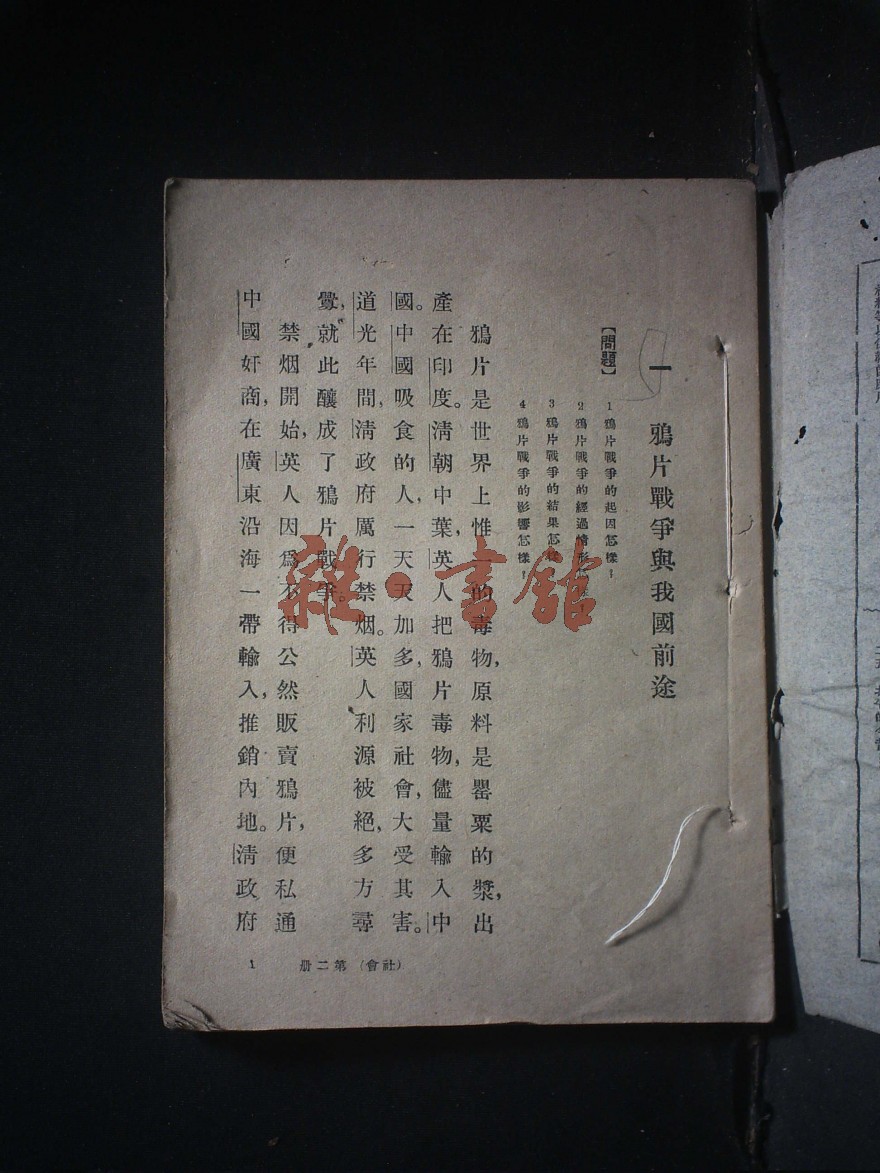 一 鴉片戰爭與我國前途
【問題】
1 鴉片戰爭的起因怎樣？
2 鴉片戰爭的經過情形
3 鴉片戰爭的結果怎樣
4 鴉片戰爭的影響怎樣？
鴉片是世界上惟一的毒物，原料是罌粟的漿，出
產在印度。清朝中葉，英人把鴉片毒物，儘量輸入中
國。中國吸食的人，一天天加多，國家社會，大受其害。
道光年間，清政府厲行禁烟。英人利源被絕，多方尋
釁，就此釀成了鴉片戰爭。
禁烟開始，英人因爲不得公然販賣鴉片，便私通
中國奸商，在廣東沿海一帶輸入，推銷內地。清政府
（社會）第二册
1
雜·書館